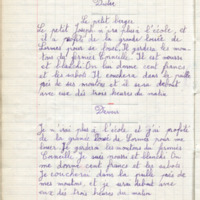 Dictée
Le petit berger
Le petit Joseph n'ira plus à l'école, et
il a profité de la grande foire de
pour se louer. Il gardera les mou-
tons du fermier Corneille. Il est nourri
et blanchi. On lui donne cent francs,
et les sabots. Il couchera dans la paille
près de ses moutons et il sera debout
avec eux dès trois heures du matin
Devoir
Je n'irai plus à l'école et j'ai profité
de la grande foire de pour me
louer. Je garderai les moutons du fermier
Corneille. Je suis nourri et blanchi. On
me donne cent francs et les sabots.
Je coucherai dans la paille près de
mes moutons, et je serai debout avec
eux dès trois heures du matin